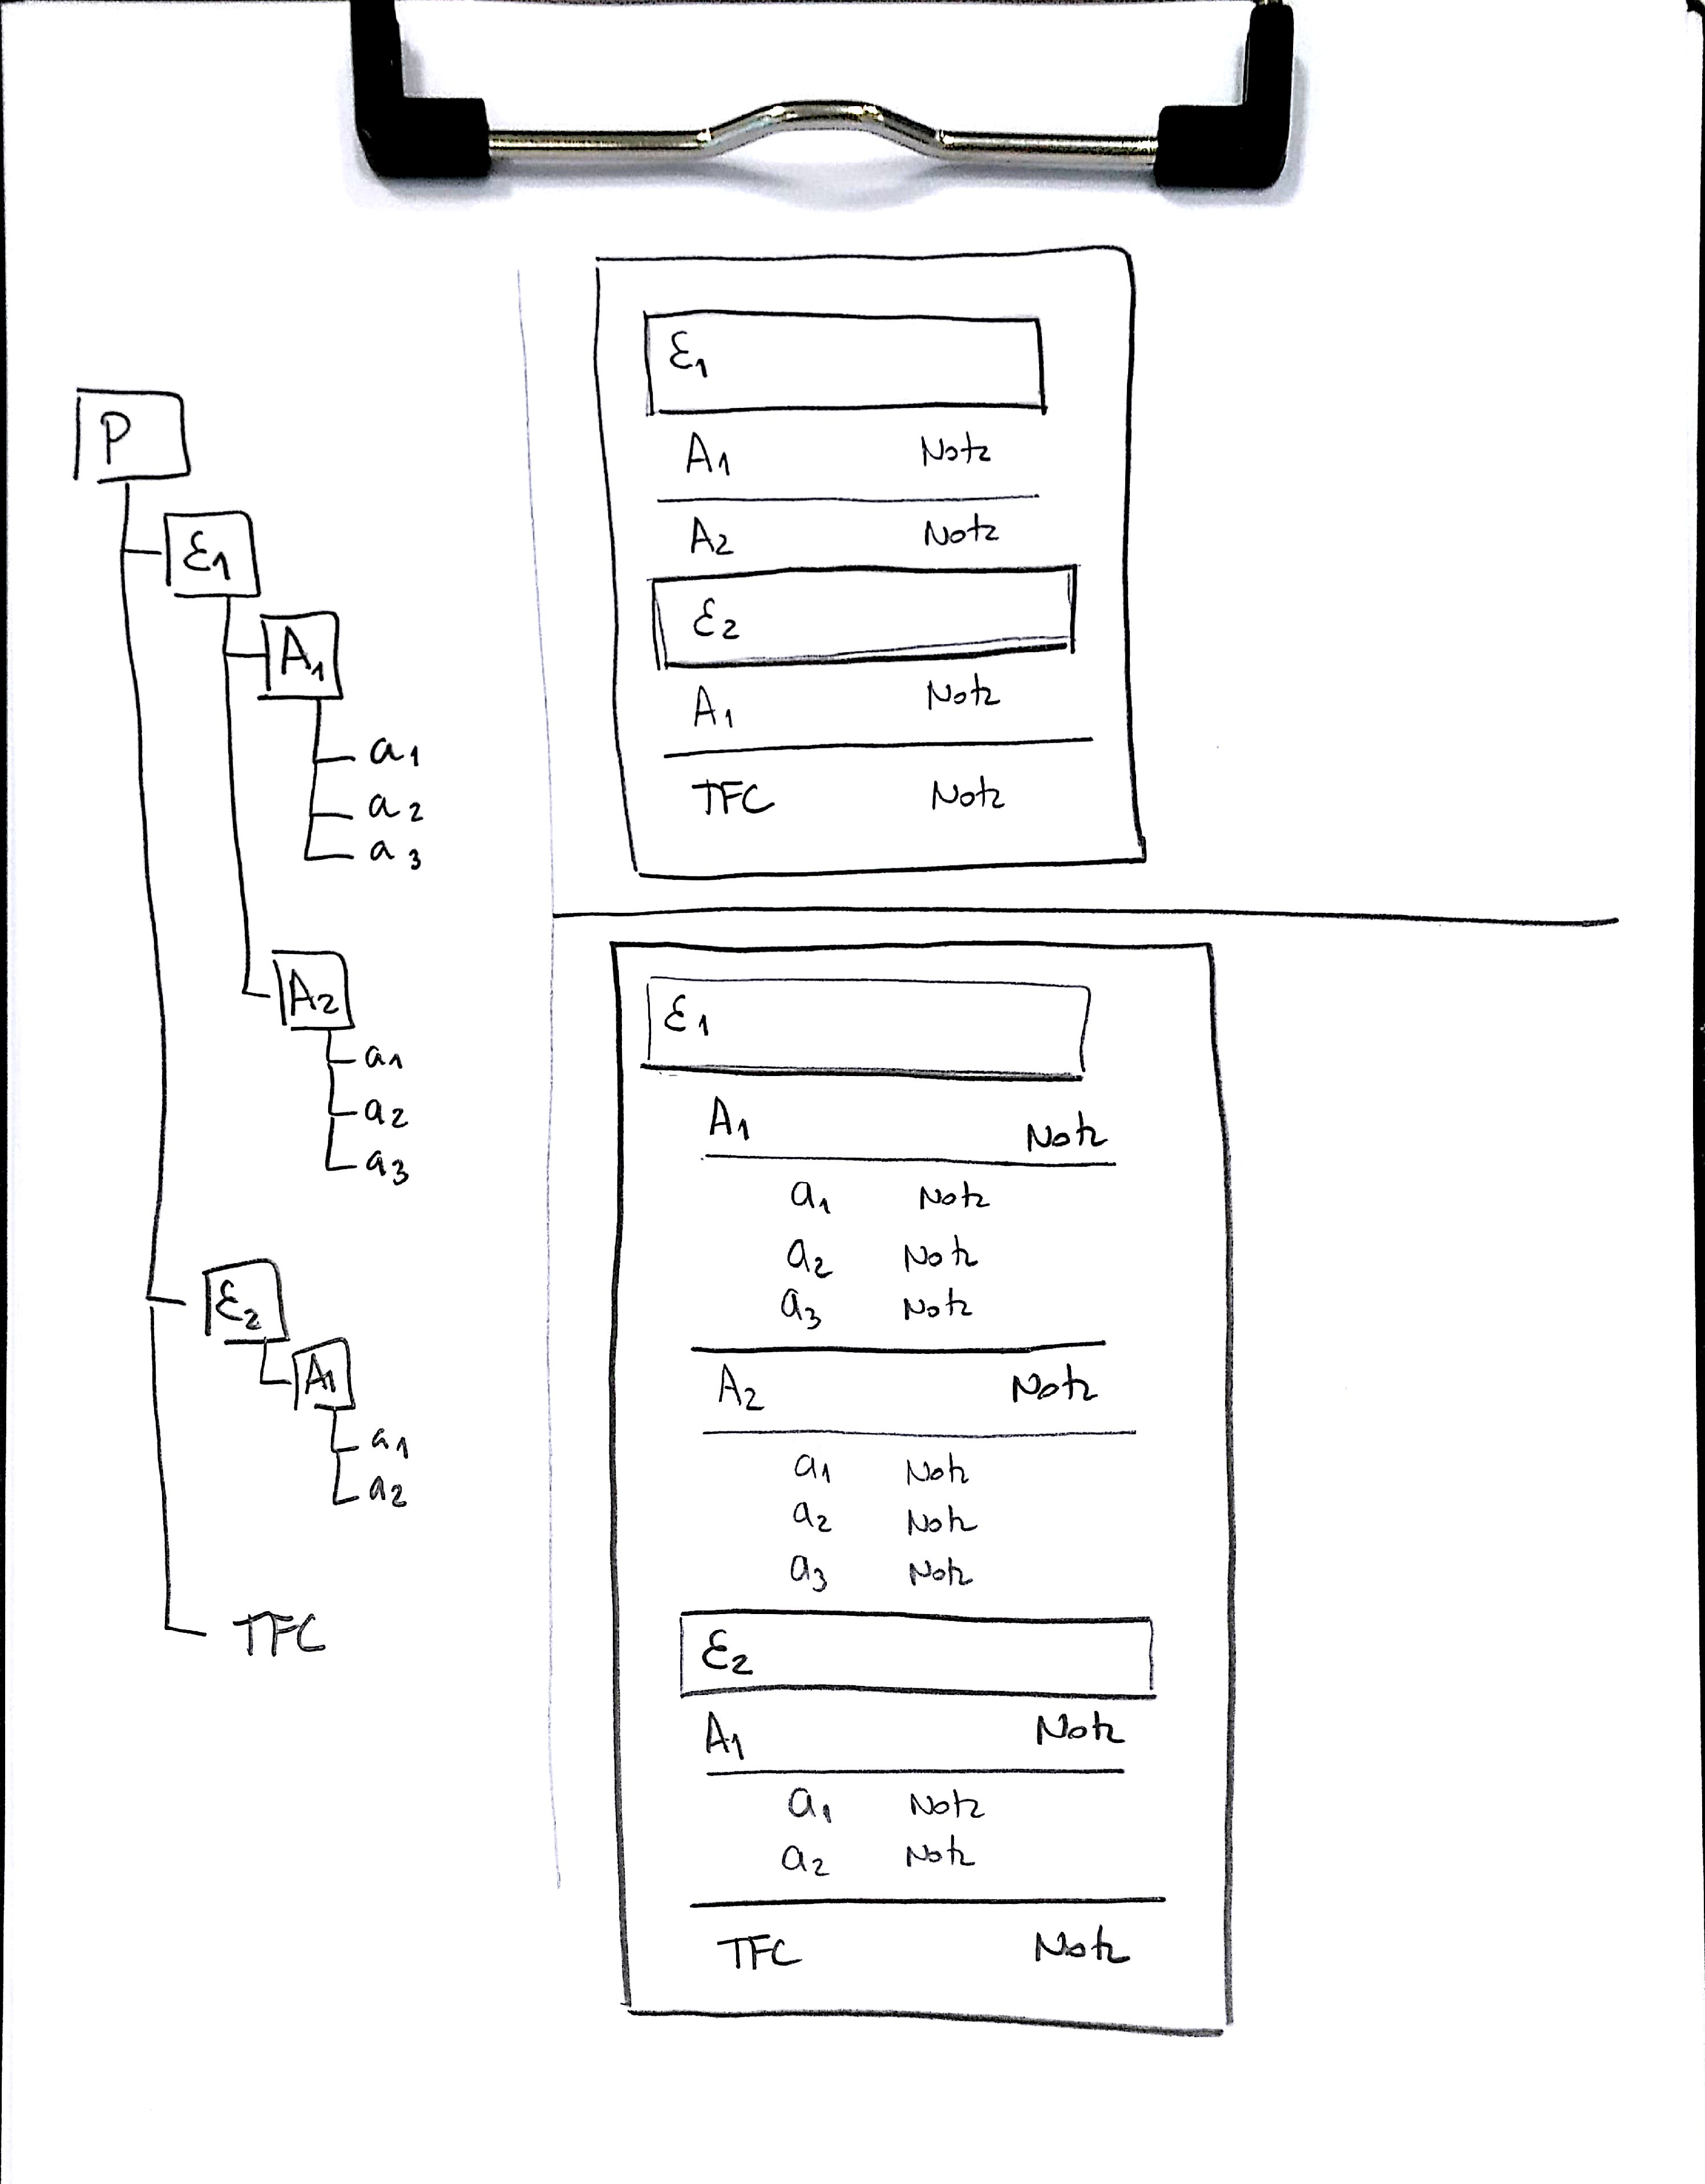 P
E1
A1
a1
a2
a3
A2
a1
a2
a3
E2
A1
a1
a2
TFC
E1
A1 Nota
A2 Nota
E2
A1 Nota
TFC Nota
E1
A1 Nota
a1 Nota
a2 Nota
a3 Nota
A2 Nota
a1 Nota
a2 Nota
a3 Nota
E2
A1 Nota
a1 Nota
a2 Nota
TFC Nota